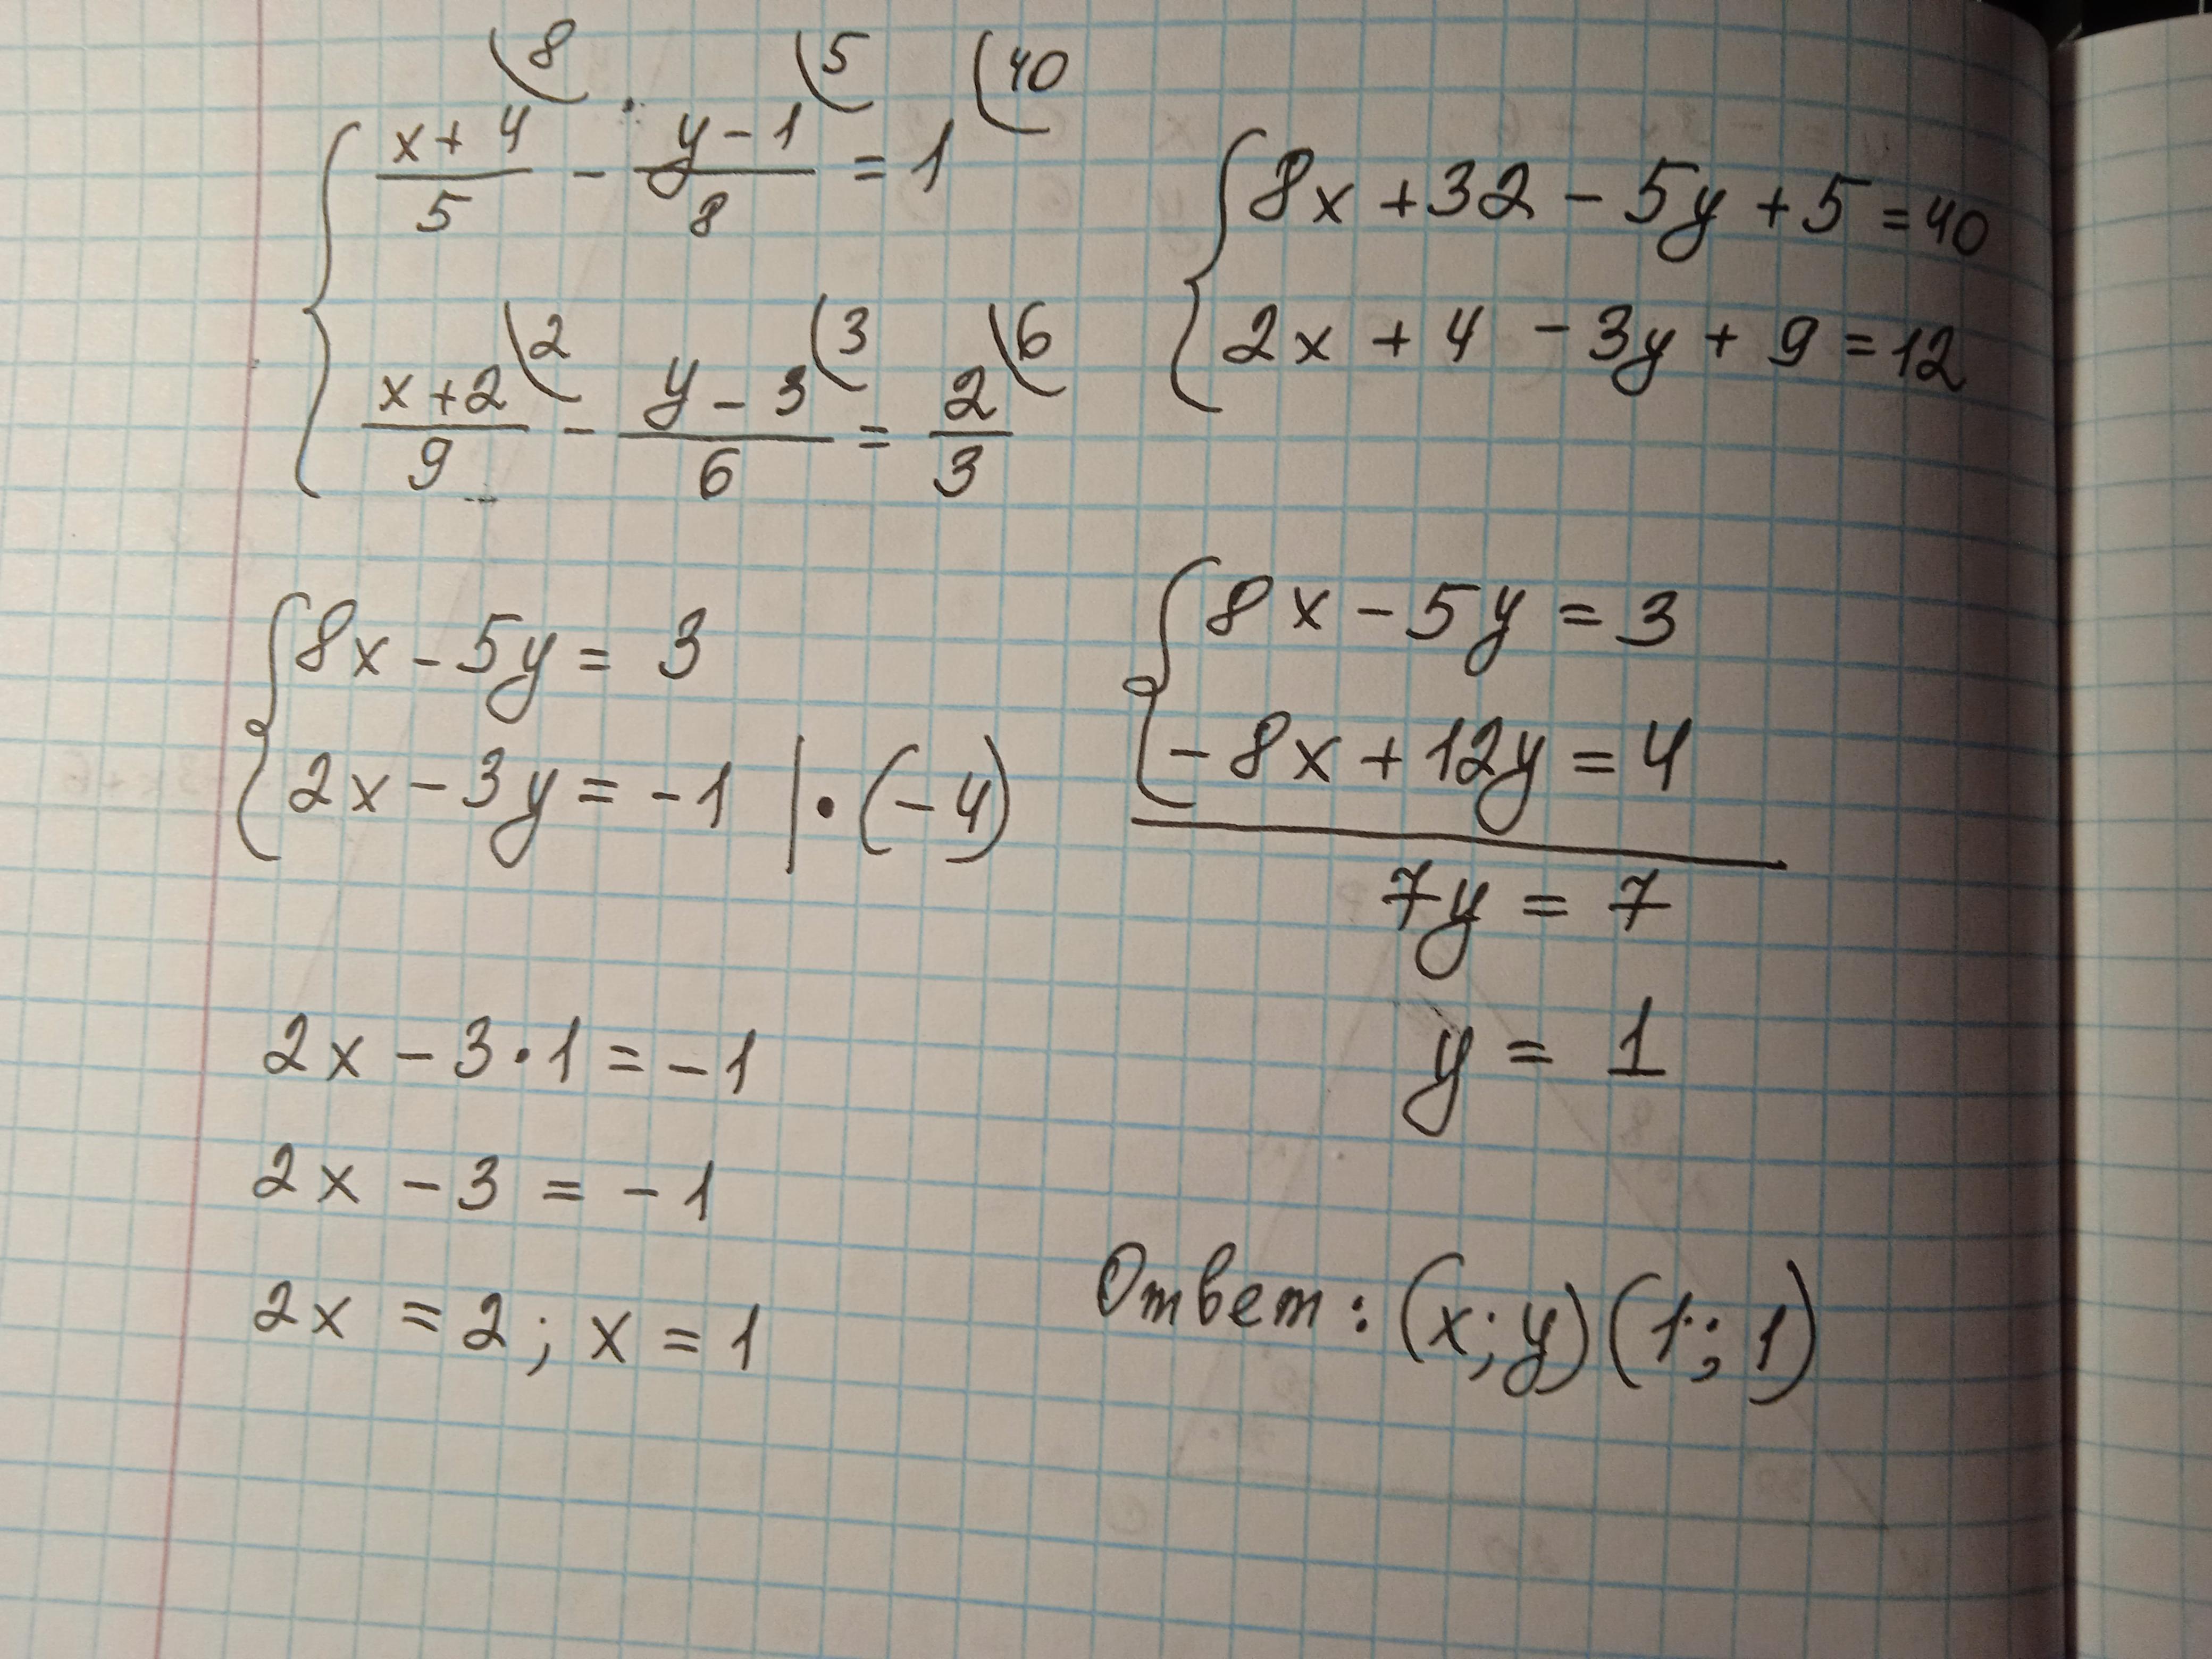 (x+4)/5 \8 - (y-1)/8 \5 = 1 \40
(x+2)/9 \2 - (y-3)/6 \3 = 2/3 \6
8x + 32 - 5y + 5 = 40
2x + 4 - 3y + 9 = 12
8x - 5y = 3
2x - 3y = -1 | · (-4)
8x - 5y = 3
-8x + 12y = 4
7y = 7
y = 1
2x - 3·1 = -1
2x - 3 = -1
2x = 2; x = 1
Ответ: (x; y) (1; 1)